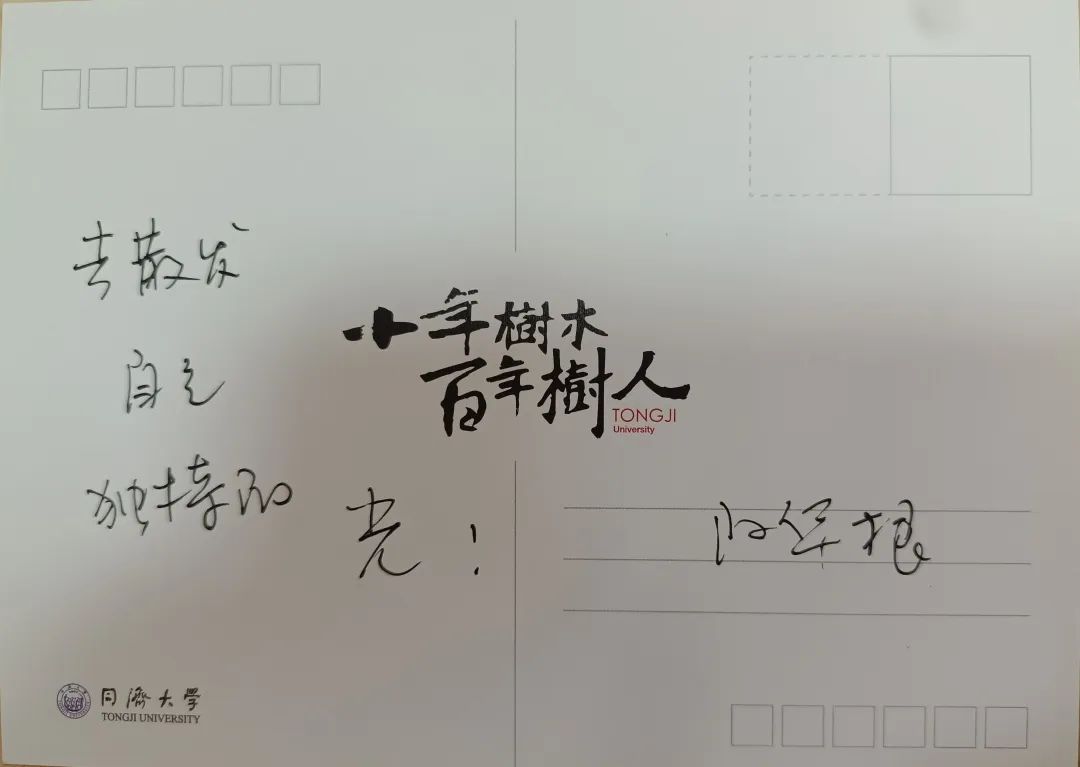 去散发
自己
独特的
光！
十年樹木
百年樹人
TONGJI
University
同濟大学
TONGJI UNIVERSITY